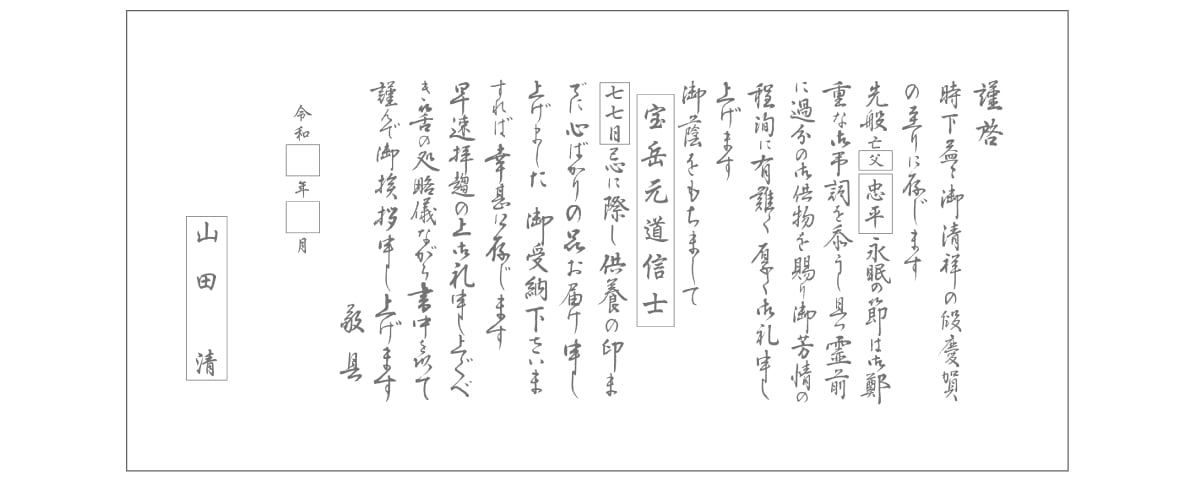 謹啓
時下益々御清祥の段慶賀
の至りに存じます
先般亡父忠平永眠の節は御鄭
重な御弔詞を忝うし且つ霊前
に過分の御供物を賜り御芳情の
程洵に有難く厚く御礼申し
上げます
御蔭をもちまして
宝岳元道信士
七七日忌に際し供養の印ま
でに心ばかりの品お届け申し
上げました 御受納下さいま
すれば幸甚に存じます
早速拝趨の上御礼申し上ぐべ
き筈の処略儀ながら書中を以て
謹んで御挨拶申し上げます
敬具
令和 年 月
山田 清